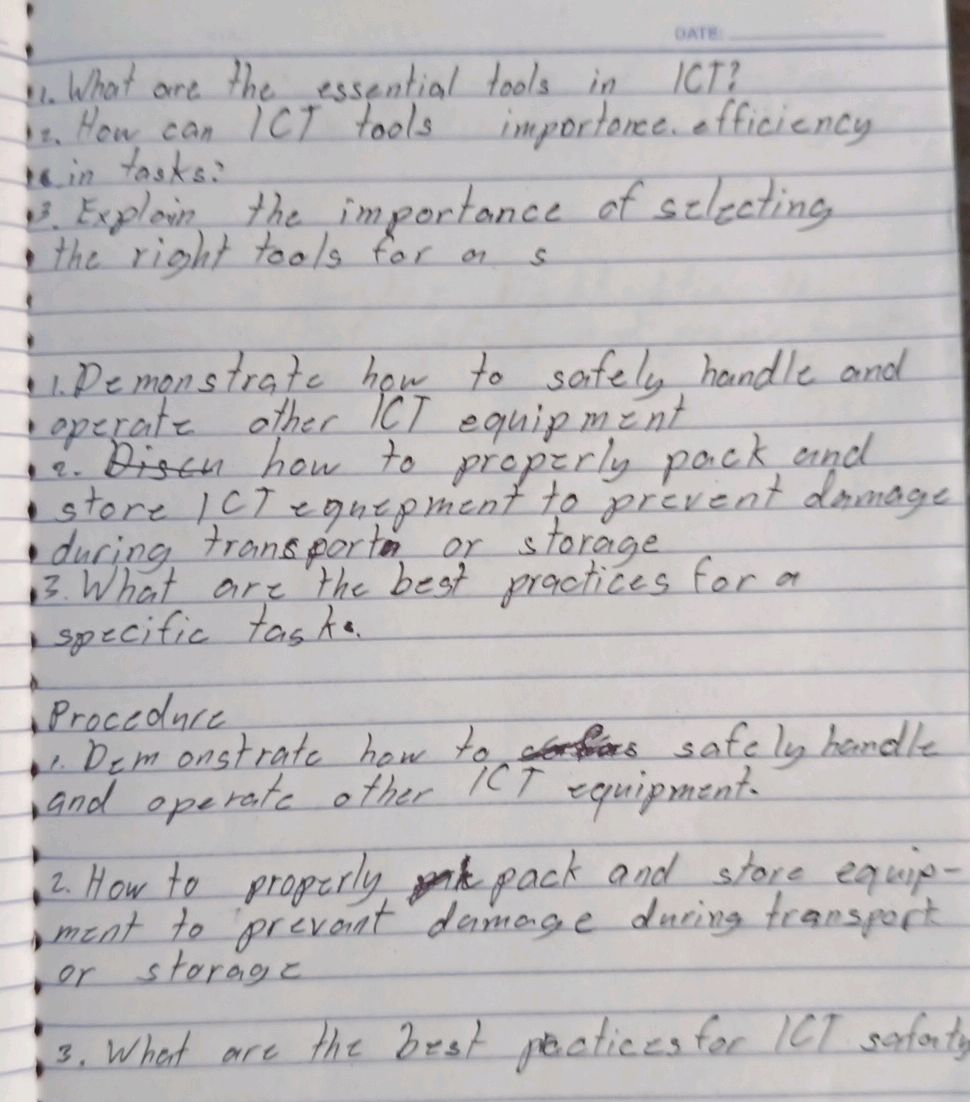 DATE:
1. What are the essential tools in ICT?
2. How can ICT tools importance. efficiency
in tasks?
3. Explain the importance of selecting
the right tools for a s
1. Demonstrate how to safely handle and
operate other ICT equipment
2. Discu how to properly pack and
store ICT equepment to prevent damage
during transport or storage
3. What are the best practices for a
specific task.
Procedure
1. Demonstrate how to safely handle
and operate other ICT equipment.
2. How to properly pack and store equip-
ment to prevant damage during transport
or storage
3. What are the best pactices for ICT safaty